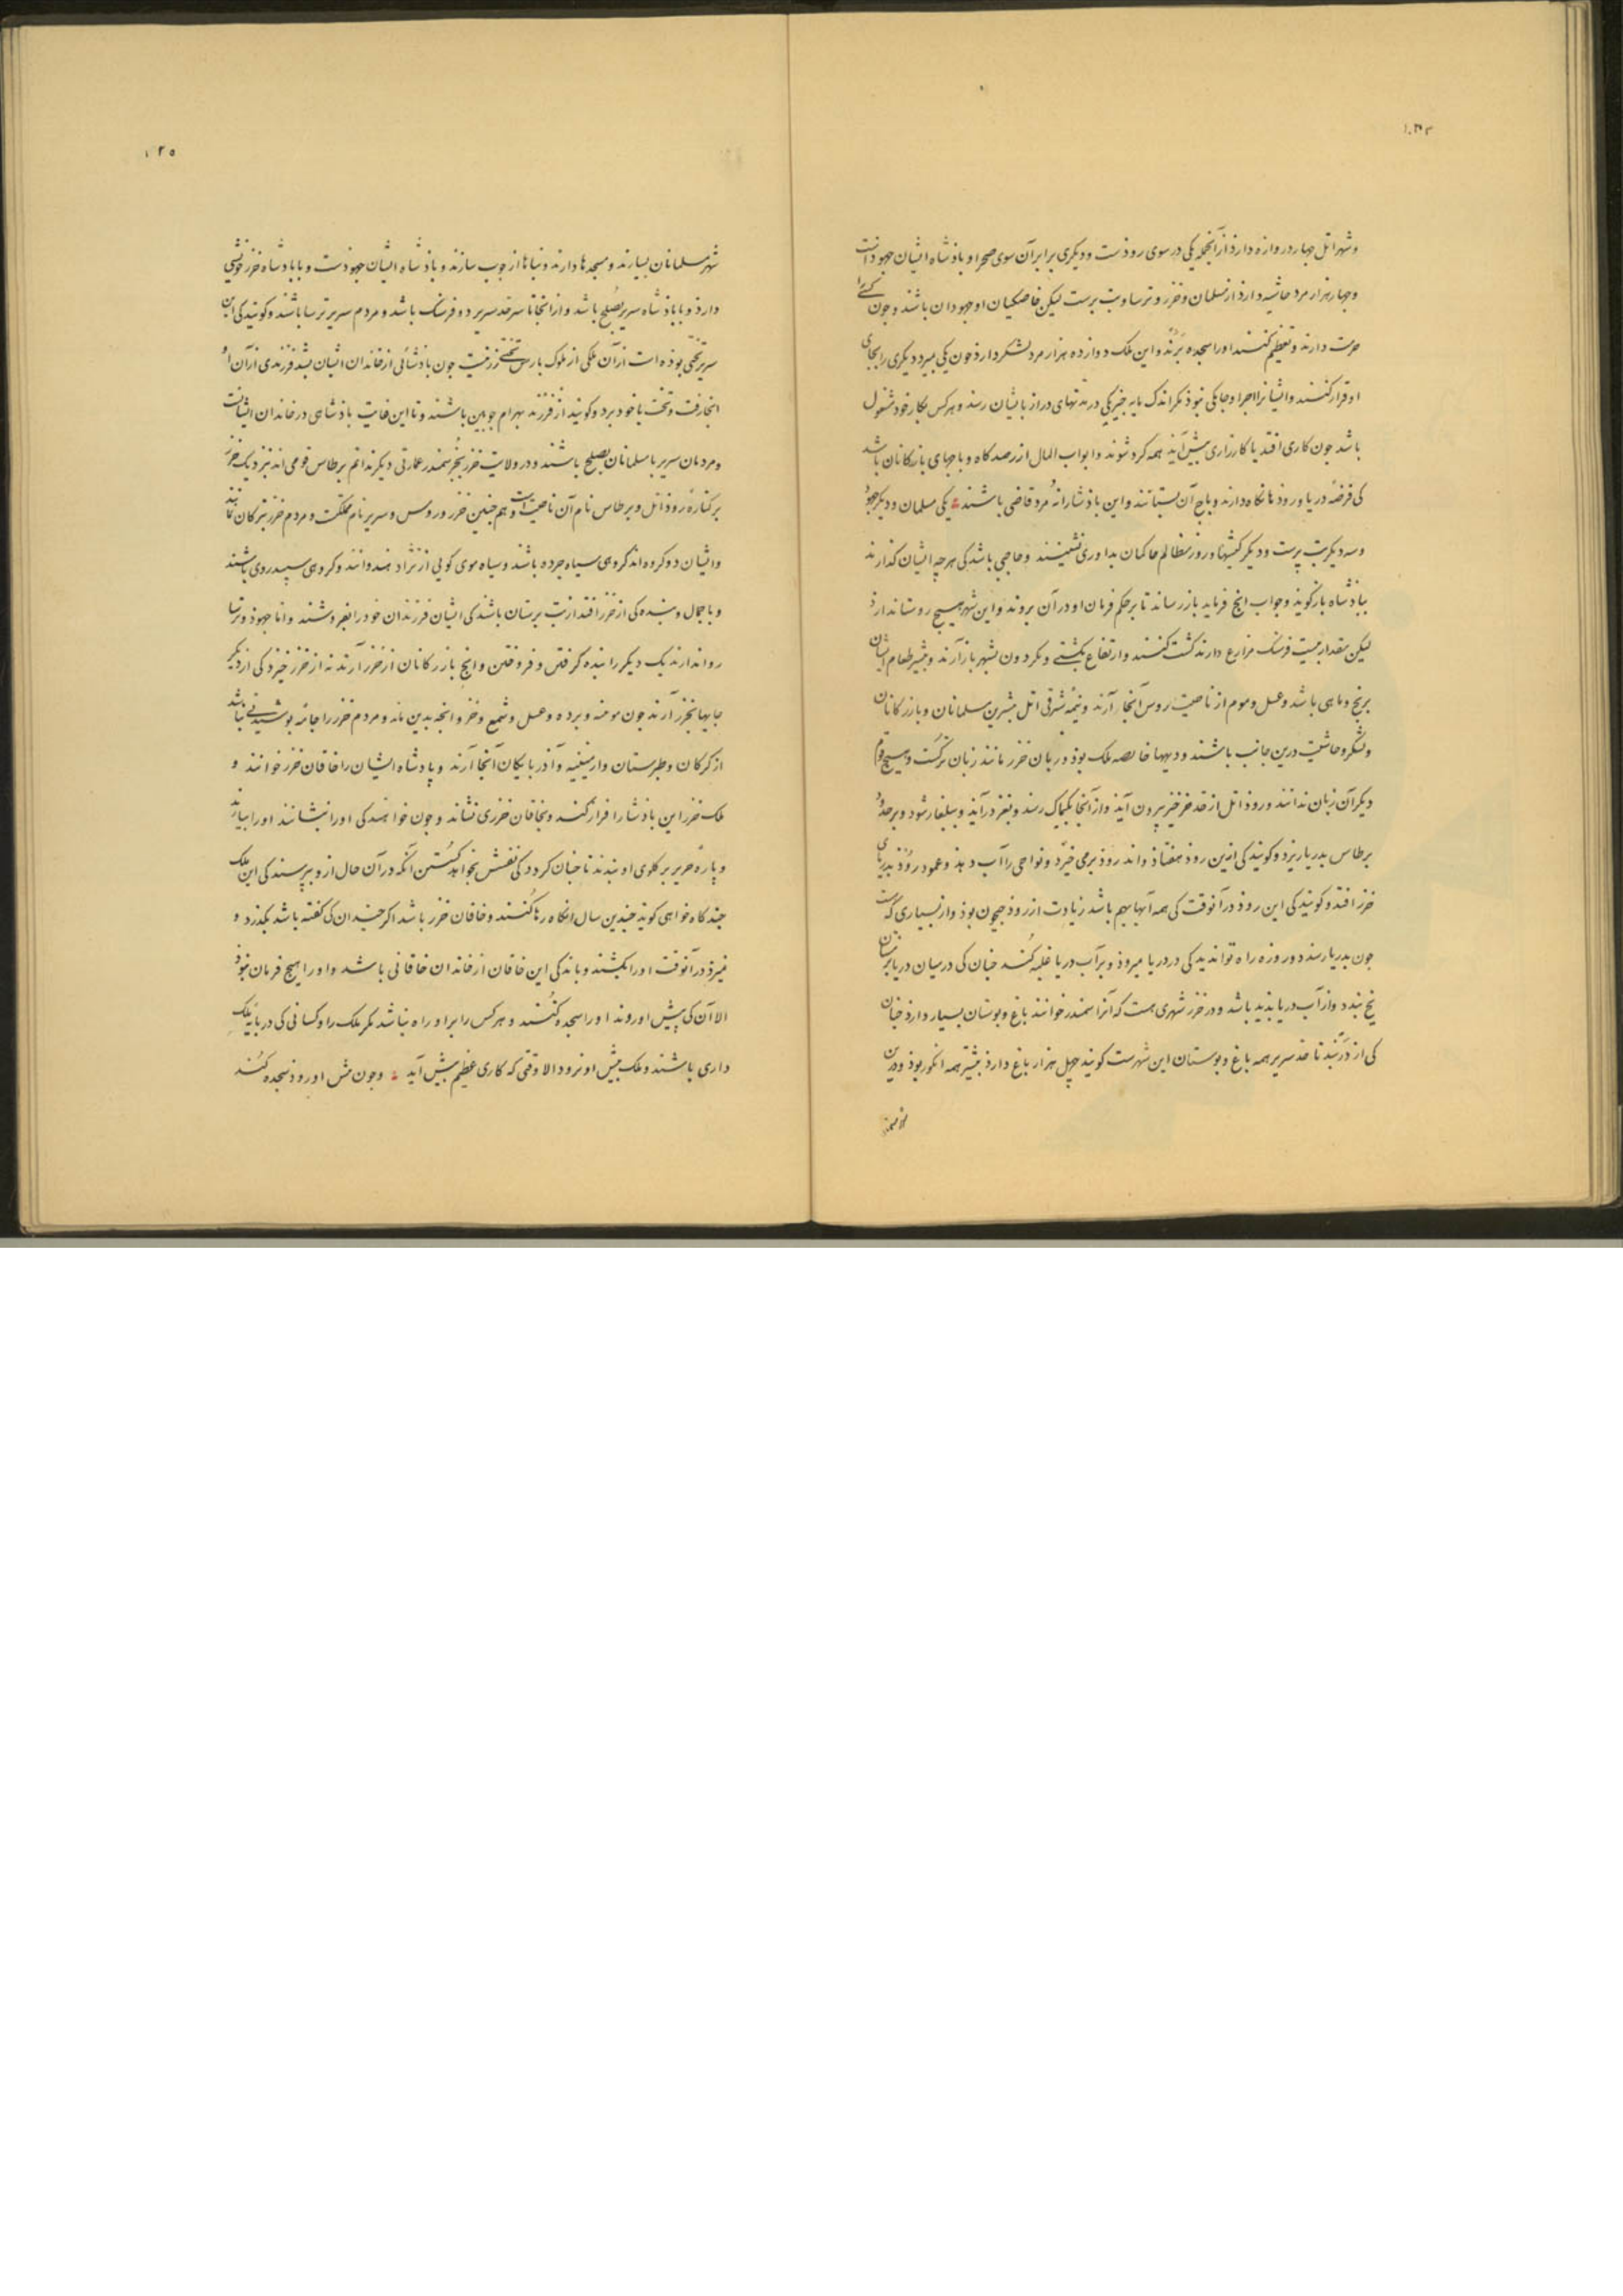 وشهر اتل چهار دروازه دارذ از آنجمله یکی در سوی روذست ودیکری برابر آن سوی صحرا و باذشاه ایشان جهوذانست
وچهار هزار مرد حاشیه دارذ از مسلمان وخزر و ترسا و بت برست لیکن خاصکیان او جهودان باشند و جون کسی را
حرمت دارند وتعظیم کنند اورا سجده برند و این ملک دوازده هزار مرد لشکر دارذ جون یکی بمیرد دیکری را بجای
او قرار کنند وایشانرا اجرا وجامکی نبوذ مکر اندک مایه جیزکی در مدتهای دراز بایشان رسذ و هرکس بکار خود مشغول
باشد جون کاری افتد یا کارزاری بیش آیذ همه کرد شوند وابواب المال از رصدکاه و باجهای بازرکانان باشد
کی فرضهٔ دریا و روذها نکاه دارند و باج آن بستانند واین باذشا را نه مرد قاضی باشند یکی مسلمان و دیکر جهوذ
وسه دیکر بت پرست ودیکر کیشها و روز مظالم حاکمان بداوری نشینند وحاجبی باشد کی هرچه ایشان کذارند
بباذشاه بازکویذ وجواب انج فرماید باز رساند تا بر حکم فرمان او در آن بروند واین شهر هیچ روستا ندارذ
لیکن مقدار بیست فرسنک مزارع دارند کشت کنند وارتفاع بکشتی و بکردون بشهر باز آرند و بیشتر طعام ایشان
برنج و ماهی باشد وعسل و موم از ناحیت روس آنجا آرند ونیمهٔ شرقی اتل بیشترین مسلمانان و بازرکانان
ولشکر و حاشیت درین جانب باشند ودیهها خالصه ملک بوذ و زبان خزر مانند زبان ترکست و هیچ قوم
دیکر آن زبان ندانند و روذ اتل از حد خرخیز بیرون آیذ واز آنجا بکیماک رسذ وبغز درآیذ و ببلغار شود و بر حدود
برطاس بدریا ریزد وکویند کی ازین روذ هفتاذ واند روذ برمی خیزد و نواحی را آب دهذ وعمود روذ بدریای
خزر افتد وکویند کی این روذ در آنوقت کی همه آبها بهم باشد زیادت از روذ جیحون بوذ و از بسیاری که است
جون بدریا رسذ دو روزه راه توان دید کی در دریا میروذ و بر آب دریا غلبه کند جنان کی در میان دریا بزمستان
یخ بندد واز آب دریا بذید باشد ودر خزر شهری هست که آنرا سمندر خوانند باغ وبوستان بسیار دارد جنان
کی از دربند تا حد سریر همه باغ و بوستان این شهرست کویند چهل هزار باغ دارذ بیشتر همه انکور بوذ ودرین
شهر مسلمانان بسیارند ومسجدها دارند وبناها از جوب سازند و باذشاه ایشان جهوذست و با بادشاه خزر خویشی
دارذ و با باذشاه سریر بصلح باشد و از انجا تا سرحد سریر دو فرسنک باشد و مردم سریر ترسا باشند وکویند کی این
سریر تختی بوذه است از آن ملکی از ملوک بارس تختی زرینست جون باذشائی از خاندان ایشان بشد فرزندی از آن او
انجا رفت وتخت با خود ببرد وکویند از فرزند بهرام جوبین باشند وتا این غایت باذشاهی در خاندان ایشانست
ومردمان سریر با مسلمانان بصلح باشند ودر ولایت خزر بجز سمندر عمارتی دیکر ندانم برطاس قومی اند بنزدیک خزر
بر کنارهٔ روذ اتل و برطاس نام آن ناحیت است و هم جنین خزر و روس و سریر نام مملکت و مردم خزر بترکان مانند
وایشان دو کروه اند کروهی سیاه چرده باشند وسیاه موی کویی از نژاد هندوانند وکروهی سپید روی باشند
وبا جمال وبنده کی از خزر افتد از بت برستان باشد کی ایشان فرزندان خود را بفروشند واما جهوذ و ترسا
روا ندارند یک دیکر را بنده کرفتن و فروختن وانچ بازرکانان از خزر آرند نه از خزر خیزد کی از دیکر
جایها بخزر آرند جون موینه و برده وعسل وشمع وخز وانجه بدین ماند و مردم خزر را جامهٔ بوشیدنی نباشد
از کرکان وطبرستان وارمینیه وآذربایکان آنجا آرند و پادشاه ایشان را خاقان خزر خوانند و
ملک خزر این باذشا را قرار کند وبخاقان خزری نشاند و جون خواهند کی اورا بنشانند اورا بیارند
و پارهٔ حریر بر کلوی او ببندند تا جنان کردد کی نفسش بخواهد کسستن آنکه در آن حال ازو ببرسند کی این ملک
جند کاه خواهی کوید جندین سال انکاه رها کنند وخاقان خزر باشد اکر جندان کی کفته باشد بکذرد و
نمیرد در آنوقت اورا بکشند و باذکی این خاقان از خاندان خاقانی باشد واورا هیچ فرمان نبوذ
الا آن کی پیش او روند اورا سجده کنند و هرکس را بر او راه نباشد مکر ملک را وکسانی کی در بایهٔ ملک
داری باشند وملک بیش او نرود الا وقتی که کاری عظیم بیش آید وجون بیش او روذ سجده کند